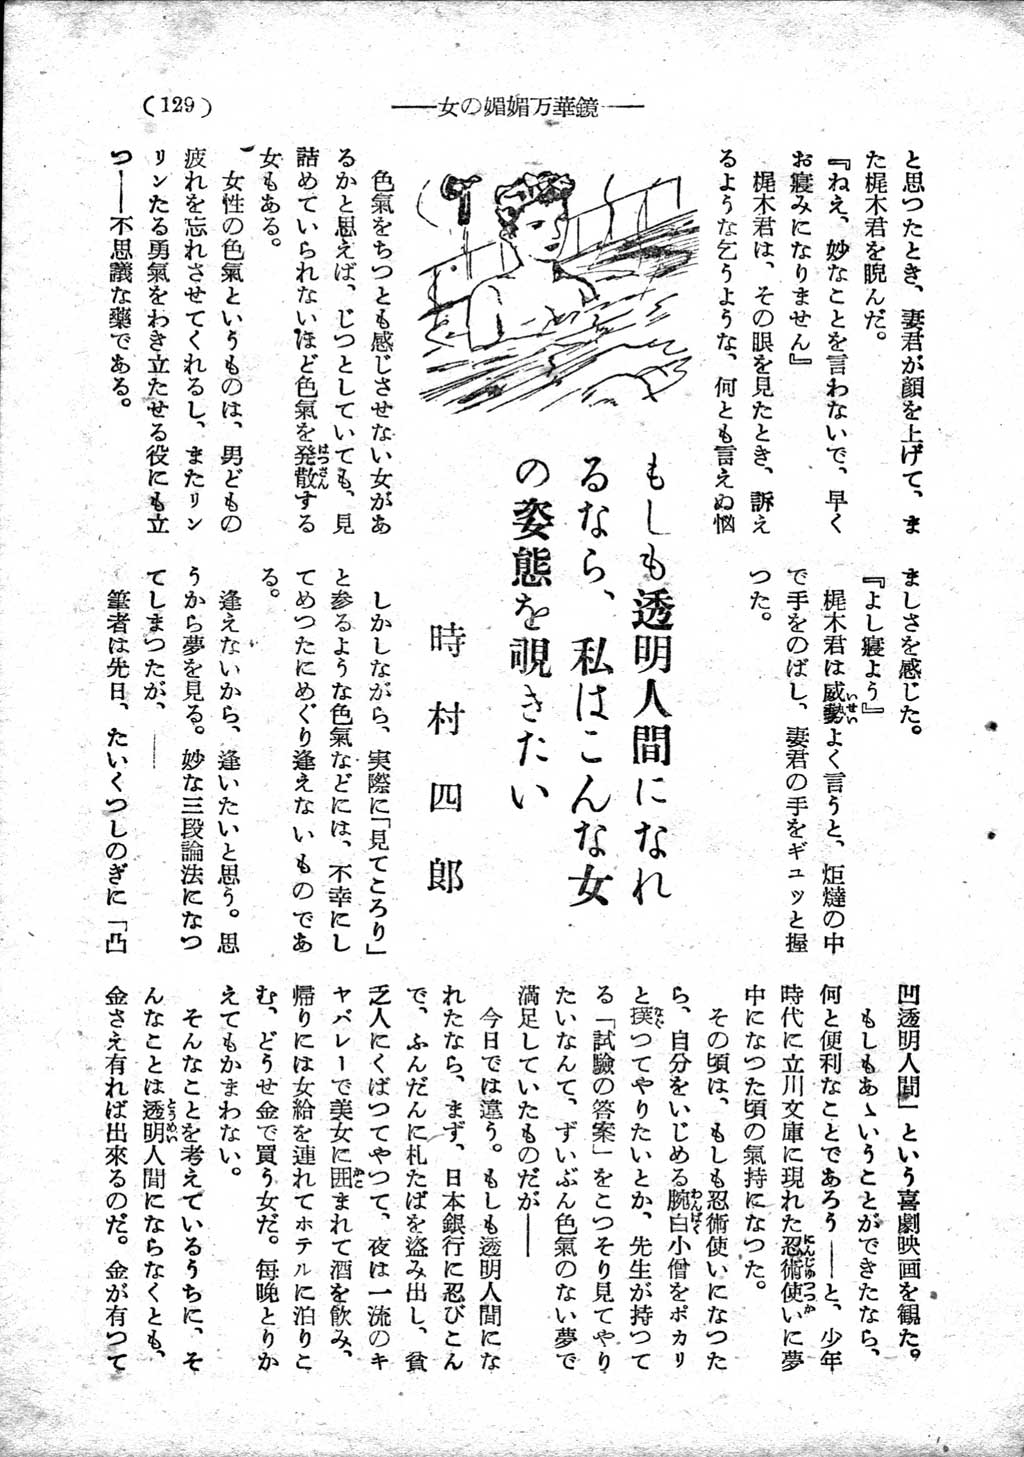 (129)
――女の媚媚万華鏡――
と思つたとき、妻君が顔を上げて、ま
た梶木君を睨んだ。
『ねえ、妙なことを言わないで、早く
お寢みになりません』
梶木君は、その眼を見たとき、訴え
るような乞うような、何とも言えぬ悩
ましさを感じた。
『よし寢よう』
梶木君は威勢よく言うと、炬燵の中
で手をのばし、妻君の手をギュッと握
つた。
もしも透明人間になれ
るなら、私はこんな女
の姿態を覗きたい
時村四郎
色氣をちつとも感じさせない女があ
るかと思えば、じつとしていても、見
詰めていられないほど色氣を発散する
女もある。
女性の色氣というものは、男どもの
疲れを忘れさせてくれるし、またリン
リンたる勇氣をわき立たせる役にも立
つ――不思議な藥である。
しかしながら、実際に「見てころり」
と参るような色氣などには、不幸にし
てめつたにめぐり逢えないものであ
る。
逢えないから、逢いたいと思う。思
うから夢を見る。妙な三段論法になつ
てしまつたが、――
筆者は先日、たいくつしのぎに「凸
凹透明人間」という喜劇映画を観た。
もしもあゝいうことができたなら、
何と便利なことであろう――と、少年
時代に立川文庫に現れた忍術使いに夢
中になつた頃の氣持になつた。
その頃は、もしも忍術使いになつた
ら、自分をいじめる腕白小僧をポカリ
と撲つてやりたいとか、先生が持つて
る「試驗の答案」をこつそり見てやり
たいなんて、ずいぶん色氣のない夢で
満足していたものだが――
今日では違う。もしも透明人間にな
れたなら、まず、日本銀行に忍びこん
で、ふんだんに札たばを盗み出し、貧
乏人にくばつてやつて、夜は一流のキ
ャバレーで美女に囲まれて酒を飲み、
帰りには女給を連れてホテルに泊りこ
む、どうせ金で買う女だ。每晩とりか
えてもかまわない。
そんなことを考えているうちに、そ
んなことは透明人間にならなくとも、
金さえ有れば出來るのだ。金が有つて